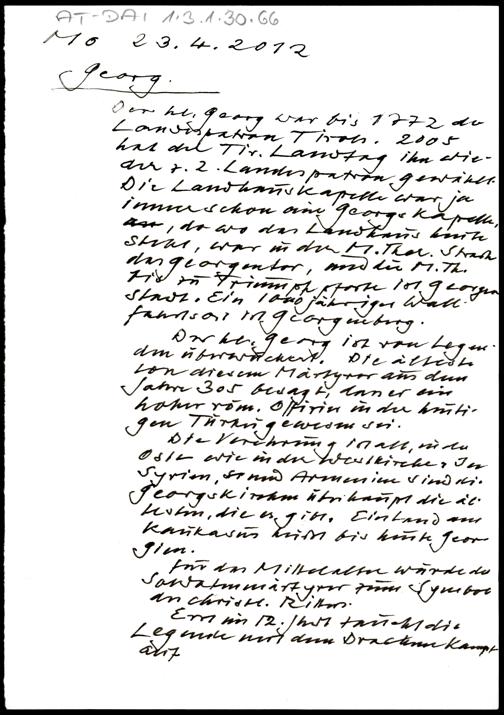 AT-DAI 1.3.1.30.66
Mo 23.4.2012
Georg.
Der hl. Georg war bis 1772 der
Landespatron Tirols. 2005
hat der Tir. Landtag ihn wie-
der z. 2. Landespatron gewählt.
Die Landhauskapelle war ja
immer schon eine Georgskapelle,
, da wo das Landhaus heute
steht, war in der M. Ther. Straße
das Georgentor, und die M. Th.
bis zu Triumphpforte ist Georgen
stadt. Ein 1000 jähriger Wall-
fahrtsort ist Georgenberg.
Der hl. Georg ist von Legen-
den überwuchert. Die älteste
von diesem Märtyrer aus dem
Jahre 305 besagt, dass er ein
hoher röm. Offizier in der heuti-
gen Türkei gewesen sei.
Die Verehrung ist alt, in der
Ost- wie in der Westkirche. In
Syrien, und Armenien sind die
Georgskirchen überhaupt die äl-
testen, die es gibt. Ein Land am
Kaukasus heißt bis heute Geor-
gien.
Für das Mittelalter wurde der
Soldatenmärtyrer zum Symbol
des christl. Ritters.
Erst im 12. Jhdt taucht die
Legende mit dem Drachenkampf
auf